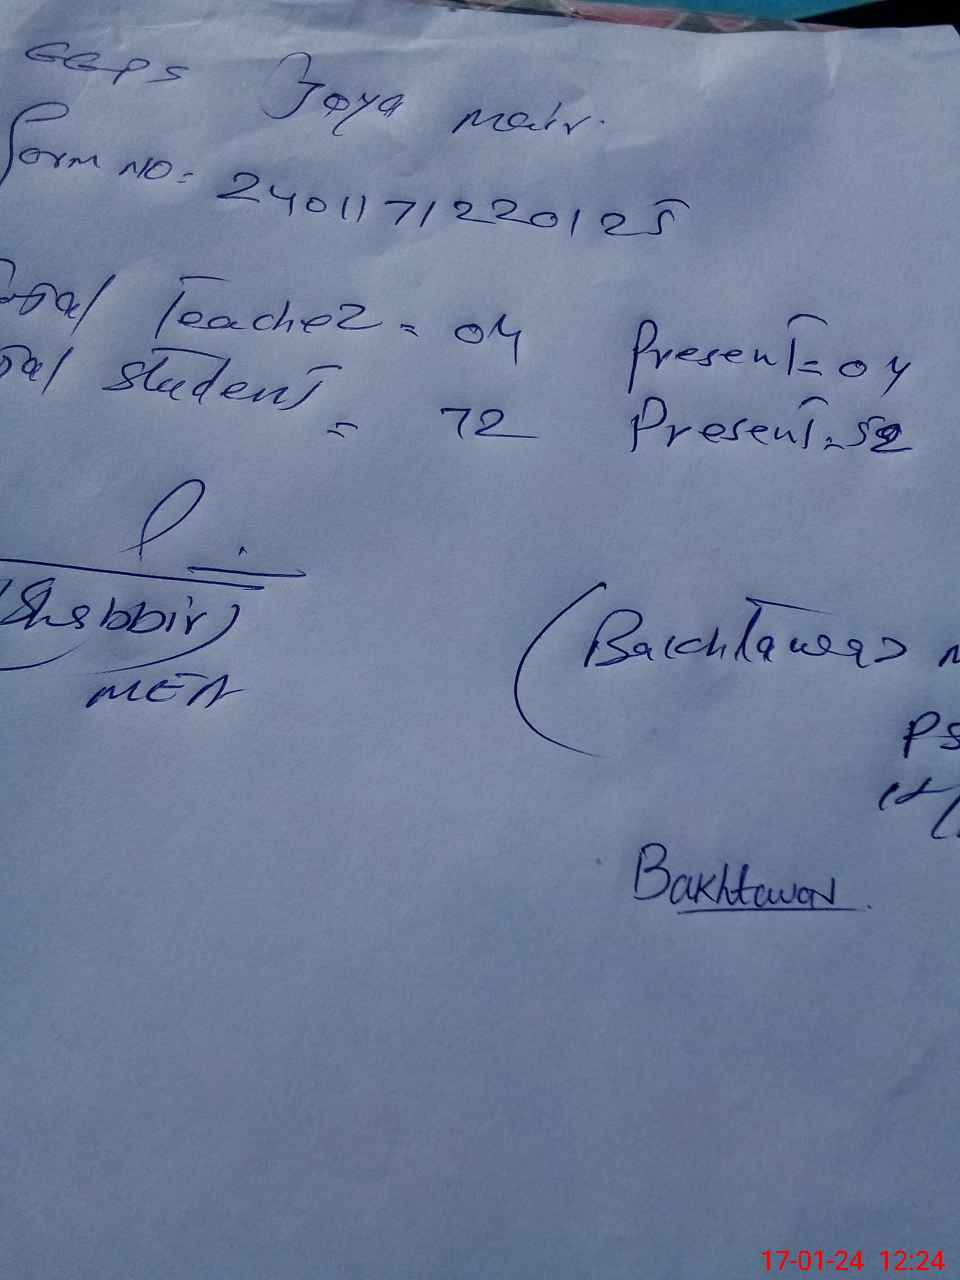 GGPS Joya mair.
Form NO= 2401171220125
Total Teacher = 04 Present = 04
Total student = 72 Present = 52
(Shabbir)
MEA
(Bakhtawar
PS
Bakhtawar
17-01-24 12:24